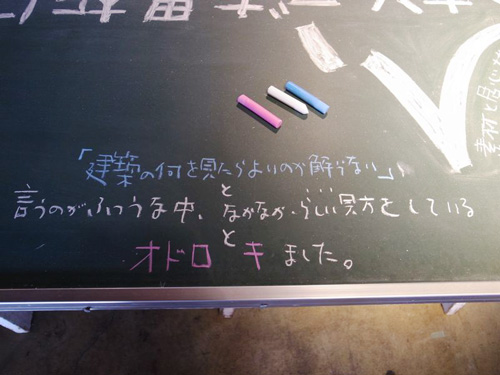 「建築の何を見たらよいのか解らない」と
言うのがふつうな中、なかなからしい見方をしていると
オドロキました。
素材と